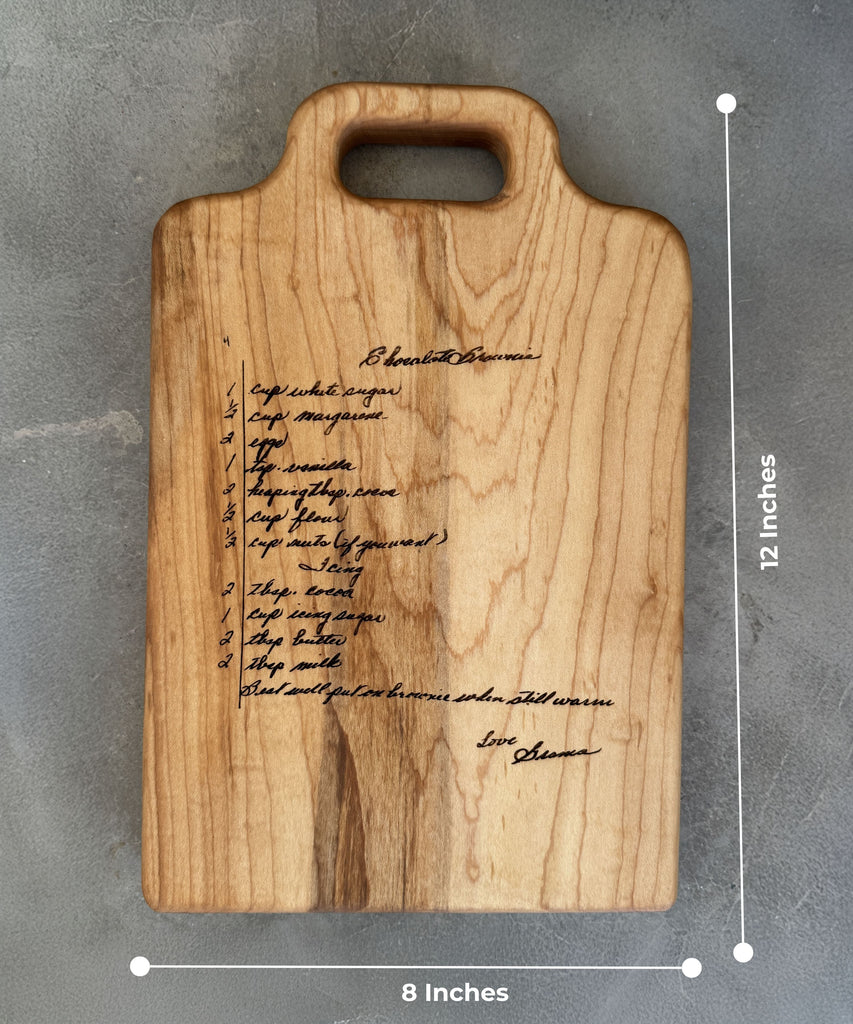 Chocolate Brownie
1 cup white sugar
1/2 cup margarene
2 eggs
1 tsp. vanilla
2 heaping tbsp. cocoa
1/2 cup flour
1/2 cup nuts (if you want)
Icing
2 tbsp. cocoa
1 cup icing sugar
2 tbsp butter
2 tbsp milk
Beat well put on brownie when still warm
Love
Grama
12 Inches
8 Inches